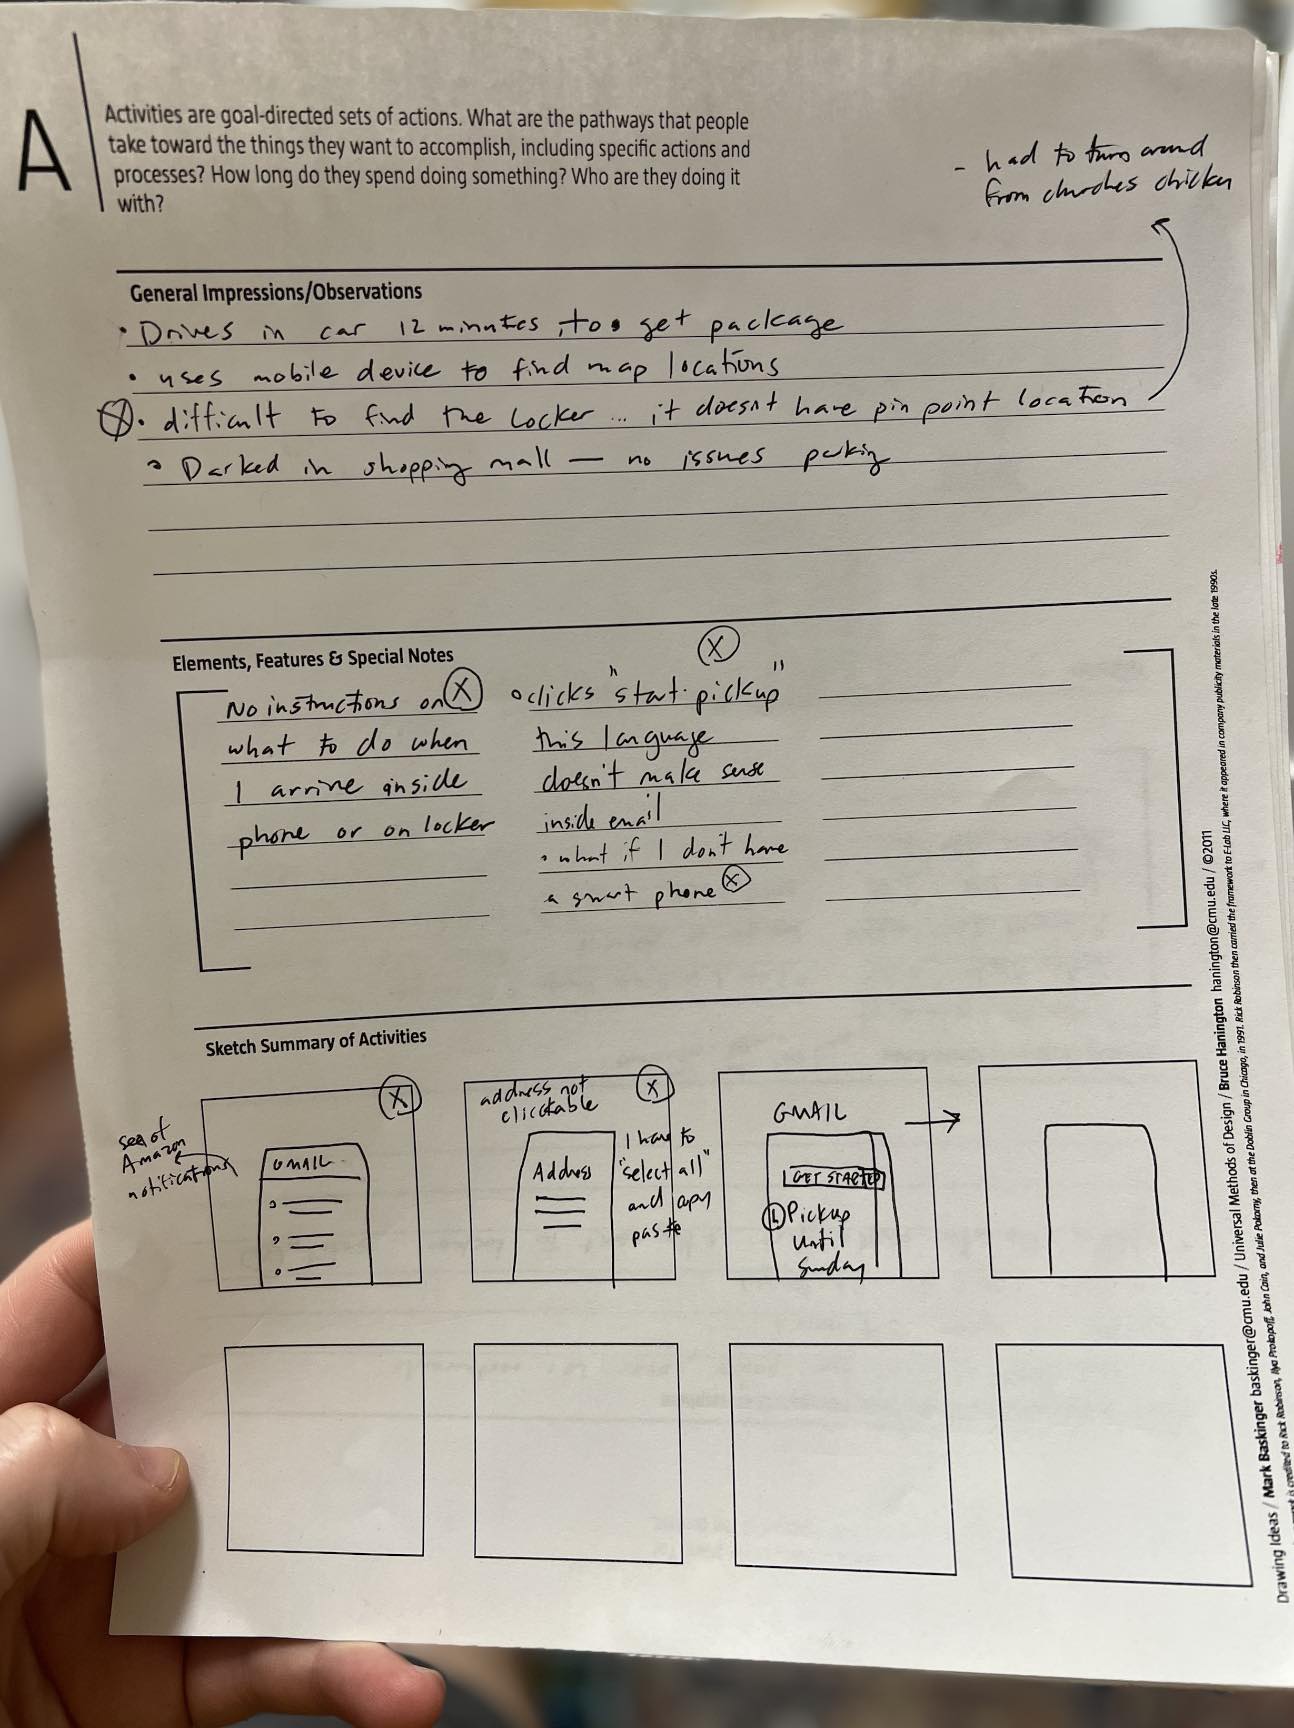 A
Activities are goal-directed sets of actions. What are the pathways that people
take toward the things they want to accomplish, including specific actions and
processes? How long do they spend doing something? Who are they doing it
with?
- had to turn around
from churches chicken
General Impressions/Observations
• Drives in car 12 minutes, to get package
• uses mobile device to find map locations
Ⓧ• difficult to find the locker ... it doesnt have pin point location
• Parked in shopping mall — no issues parking
Elements, Features & Special Notes
No instructions on Ⓧ
what to do when
I arrive inside
phone or on locker
Ⓧ
• clicks "start pickup"
this language
doesn't make sense
inside email
• what if I don't have
a smart phone Ⓧ
Sketch Summary of Activities
sea of
Amazon
notifications
Ⓧ
GMAIL
address not
Ⓧ
Address
I have to
"select all"
and copy
paste
GMAIL
GET STARTED
Pickup
until
Sunday
Drawing Ideas / Mark Baskinger baskinger@cmu.edu / Universal Methods of Design / Bruce Hanington hanington@cmu.edu / ©2011
is credited to Rick Robinson, Ilya Prokopoff, John Cain, and Julie Pokorny, then at the Doblin Group in Chicago, in 1991. Rick Robinson then carried the framework to E-lab LLC, where it appeared in company publicity materials in the late 1990s.